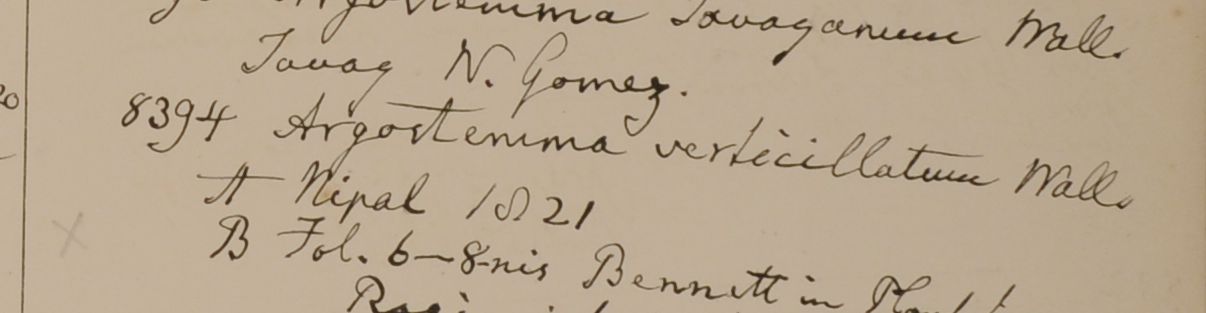 Argostemma Tavoyanum Wall.
Tavoy W. Gomez.
8394 Argostemma verticillatum Wall.
A Nipal 1821
B Fol. 6-8-nis Bennett in